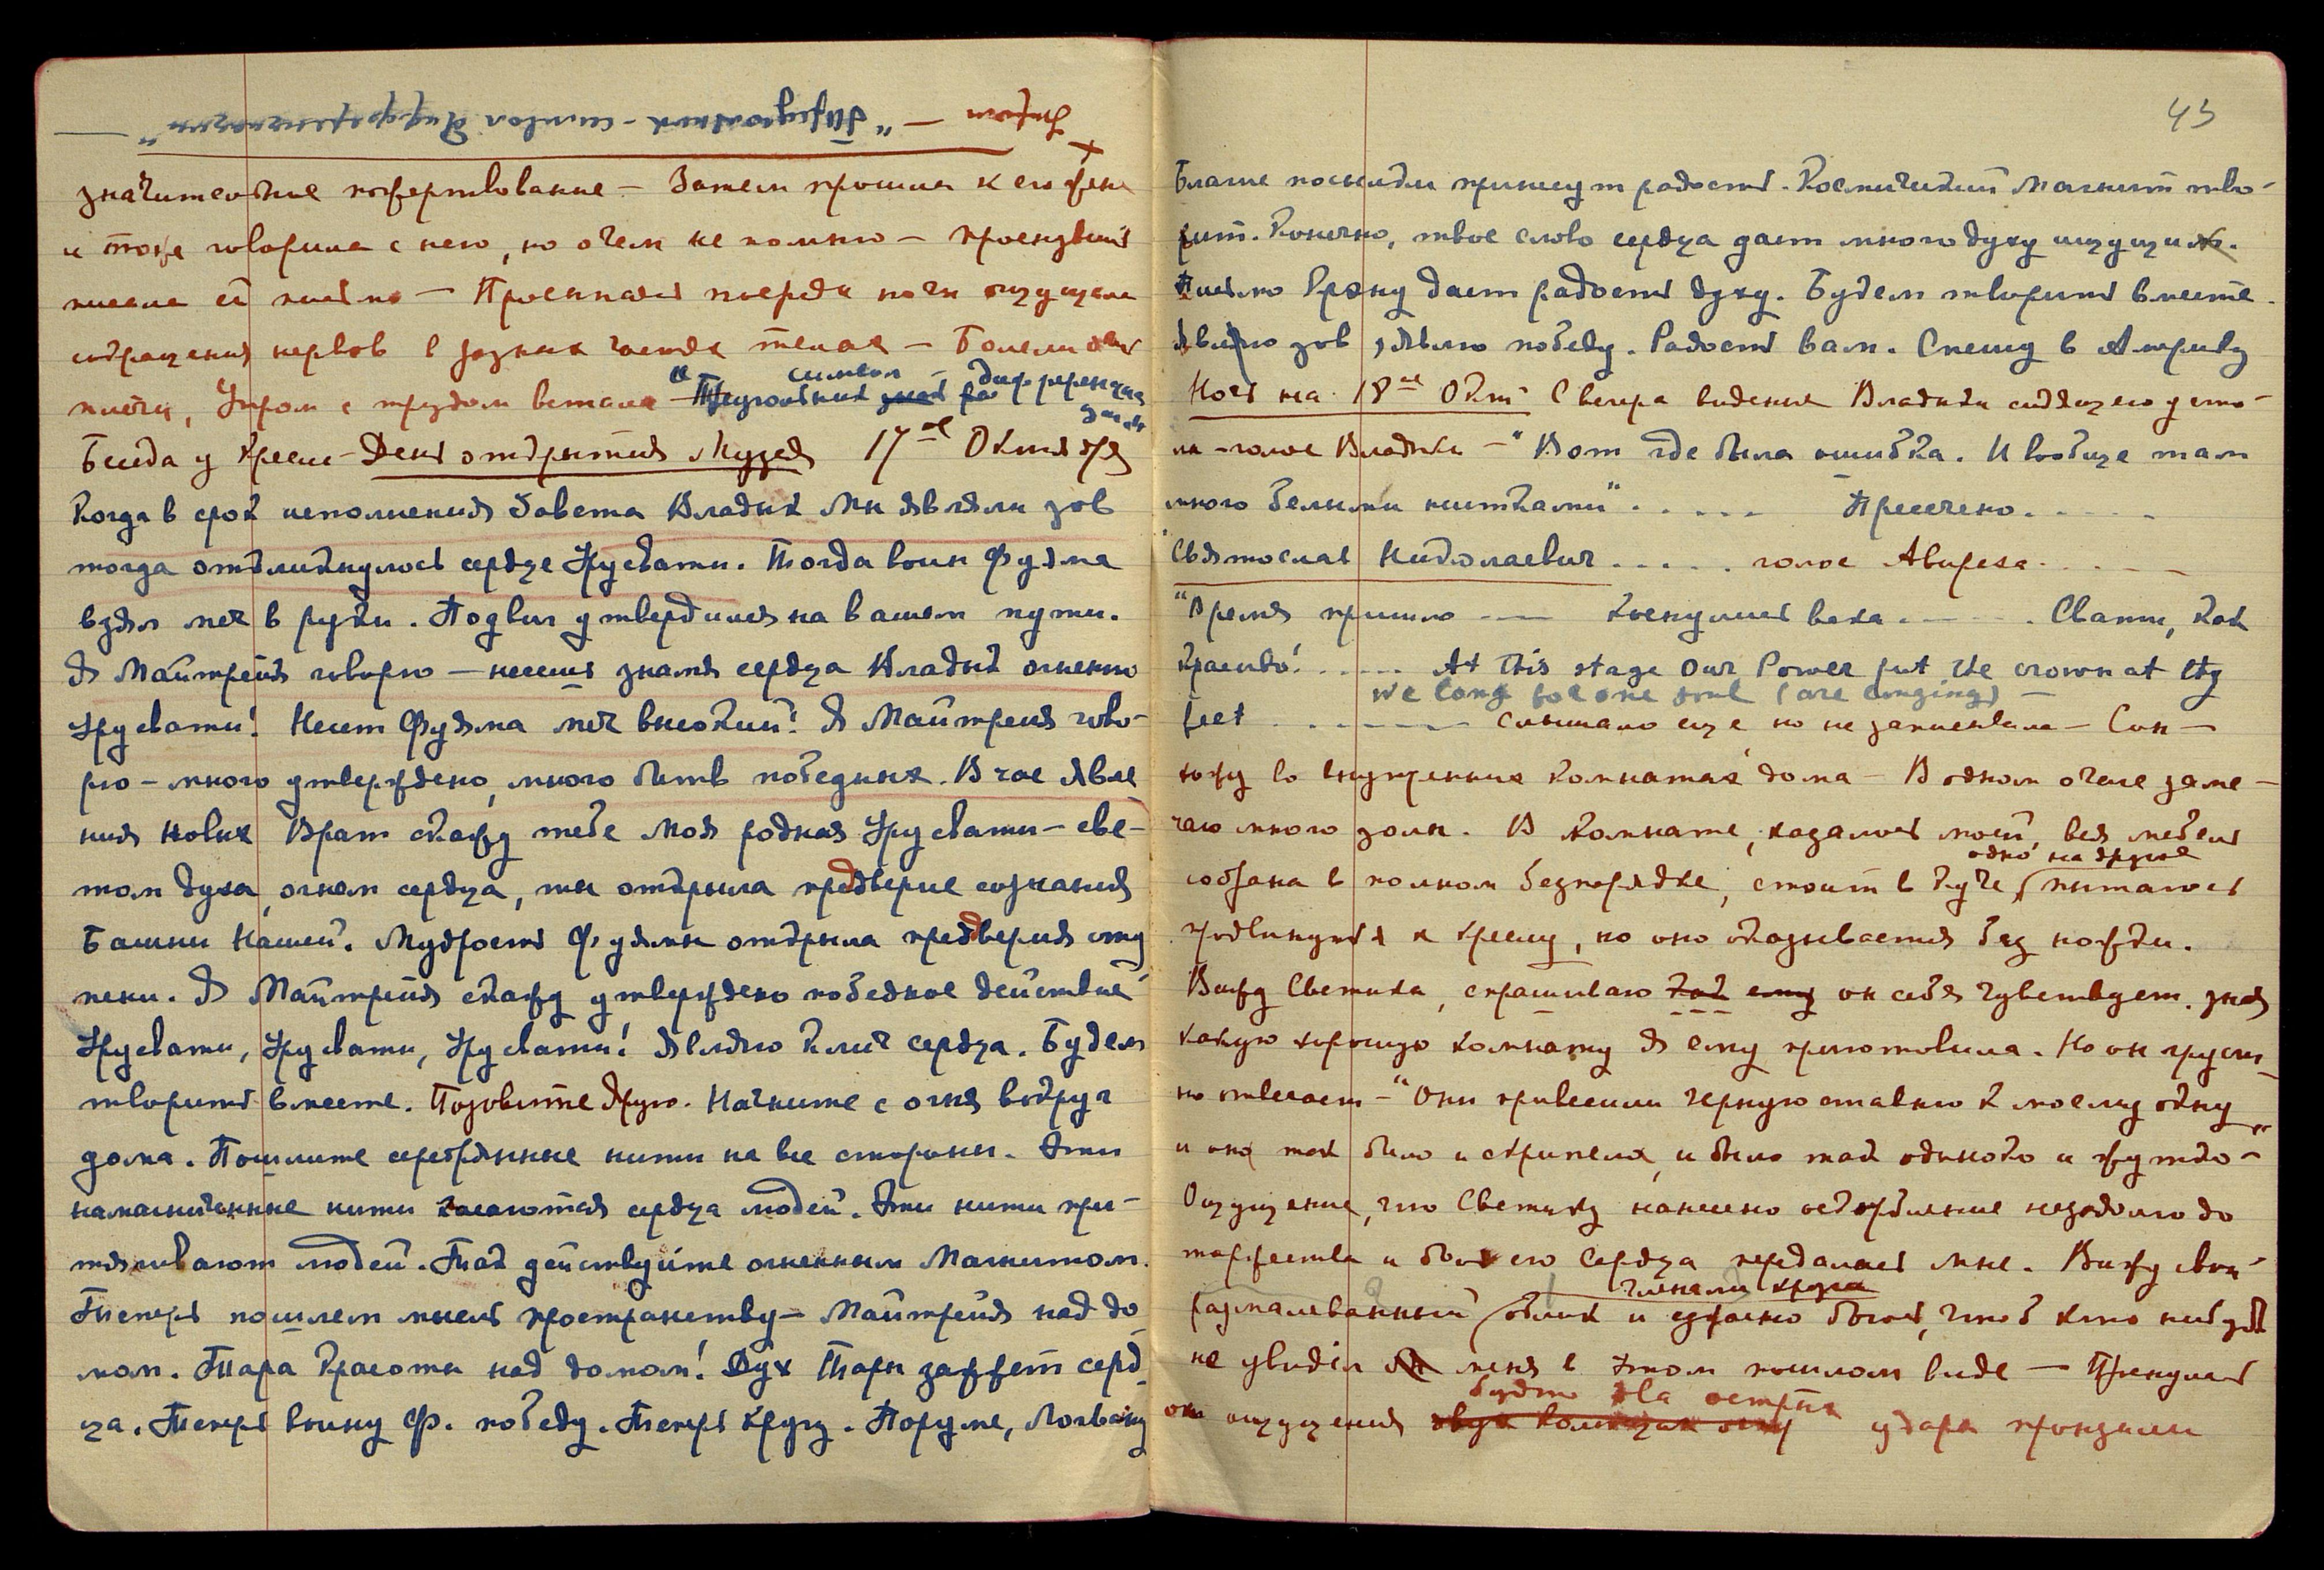 Утром — "Треугольник - символ Дифференциации"
значительное пожертвование — Затем прошла к его жене
и тоже говорила с нею, но о чем не помню — проснувшись
писала ей письмо — Просыпаясь посреди ночи ощущала
сокращения нервов в разных частях тела — Болели
плечи, Утром с трудом встала "Треугольник символ - дифференциац
Беседа у Кресла - День открытия Музея 17ое Октября
Когда в срок исполнения Завета Владык Мы являли зов
тогда откликнулось сердце Урусвати. Тогда воин Фуяма
взял меч в руки. Подвиг утвердился на вашем пути.
Я Майтрейя говорю — несешь знамя сердца Владык огненно
Урусвати! Несет Фуяма меч высокий! Я Майтрейя гово-
рю — много утверждено, много битв победных. В час явле
ния новых Врат скажу тебе моя родная Урусвати — све-
том духа, огнем сердца, ты открыла предверие сознания
Башни Нашей. Мудрость Фуямы открыла предверия сту
пени. Я Майтрейя скажу утверждено победное действие
Урусвати, Урусвати, Урусвати! Являю Клич сердца. Будем
творить вместе. Позовите друг. Начните с огня вокруг
дома. Пошлите серебрянные нити на все стороны. Эти
намагниченные нити касаются сердца людей. Эти нити при-
тягивают людей. Так действуйте огненным Магнитом.
Теперь пошлем мысль пространству — Майтрейя над до
мом. Тара Красоты над домом! Дух Тары зажжет серд
ца. Теперь воину Ф. победу. Теперь кругу. Поруме, Логвану
43
Благие посылки принесут радость. Космический Магнит тво-
рит. Конечно, твое слово сердца дает много духу ищущих.
Письмо дает радость духу. Будем творить вместе.
Являю зов, являю победу. Радость вам. Спешу в Америку
Ночь на 18ое Окт С вечера видение Владыки сидящего у сто-
ла — голос Владыки — "Вот где была ошибка. И вообще там
много белыми нитками" ..... Пресечено.....
Святослав Николаевич ..... голос Авираха.....
"Время пришло —— Коснулись века ...... Свати, как
красиво! ..... At this stage Our Power put the crown at thy
We long for one soul (are longing) —
feet ........ слышала еще но не записывала — Сон —
хожу во внутренних комнатах дома — В одном очаге заме-
чаю много золы. В комнате, казалось моей, вся мебель
собрана в полном безпорядке, стоит в куче одно на другое (пытаюсь
продвинуться к креслу, но оно оказывается без ножки.
Вижу Светика, спрашиваю как он себя чувствует. зная
какую хорошую комнату я ему приготовила. Но он груст
но отвечает — "Они привесили черную ставню к моему окну
и она так била и скрипела, и было так одиноко и жутко"
Ощущение, что Светику нанесено оскорбление незадолго до
торжества и боль его сердца передалась мне. Вижу свой
размалеванный облик и ужасно боюсь, чтоб кто нибудь
не увидел меня в этом пошлом виде — Проснулась
от ощущения будто два острых удара пронзили